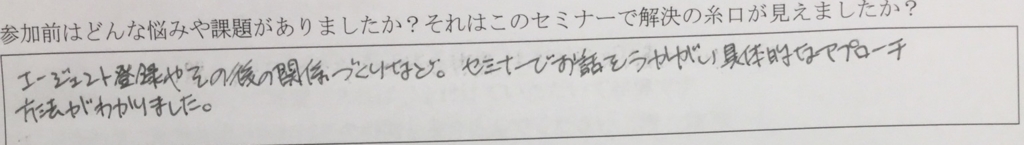 参加前はどんな悩みや課題がありましたか？それはこのセミナーで解決の糸口が見えましたか？
エージェント登録やその後の関係づくりなど。セミナーでお話をうかがい具体的なアプローチ
方法がわかりました。